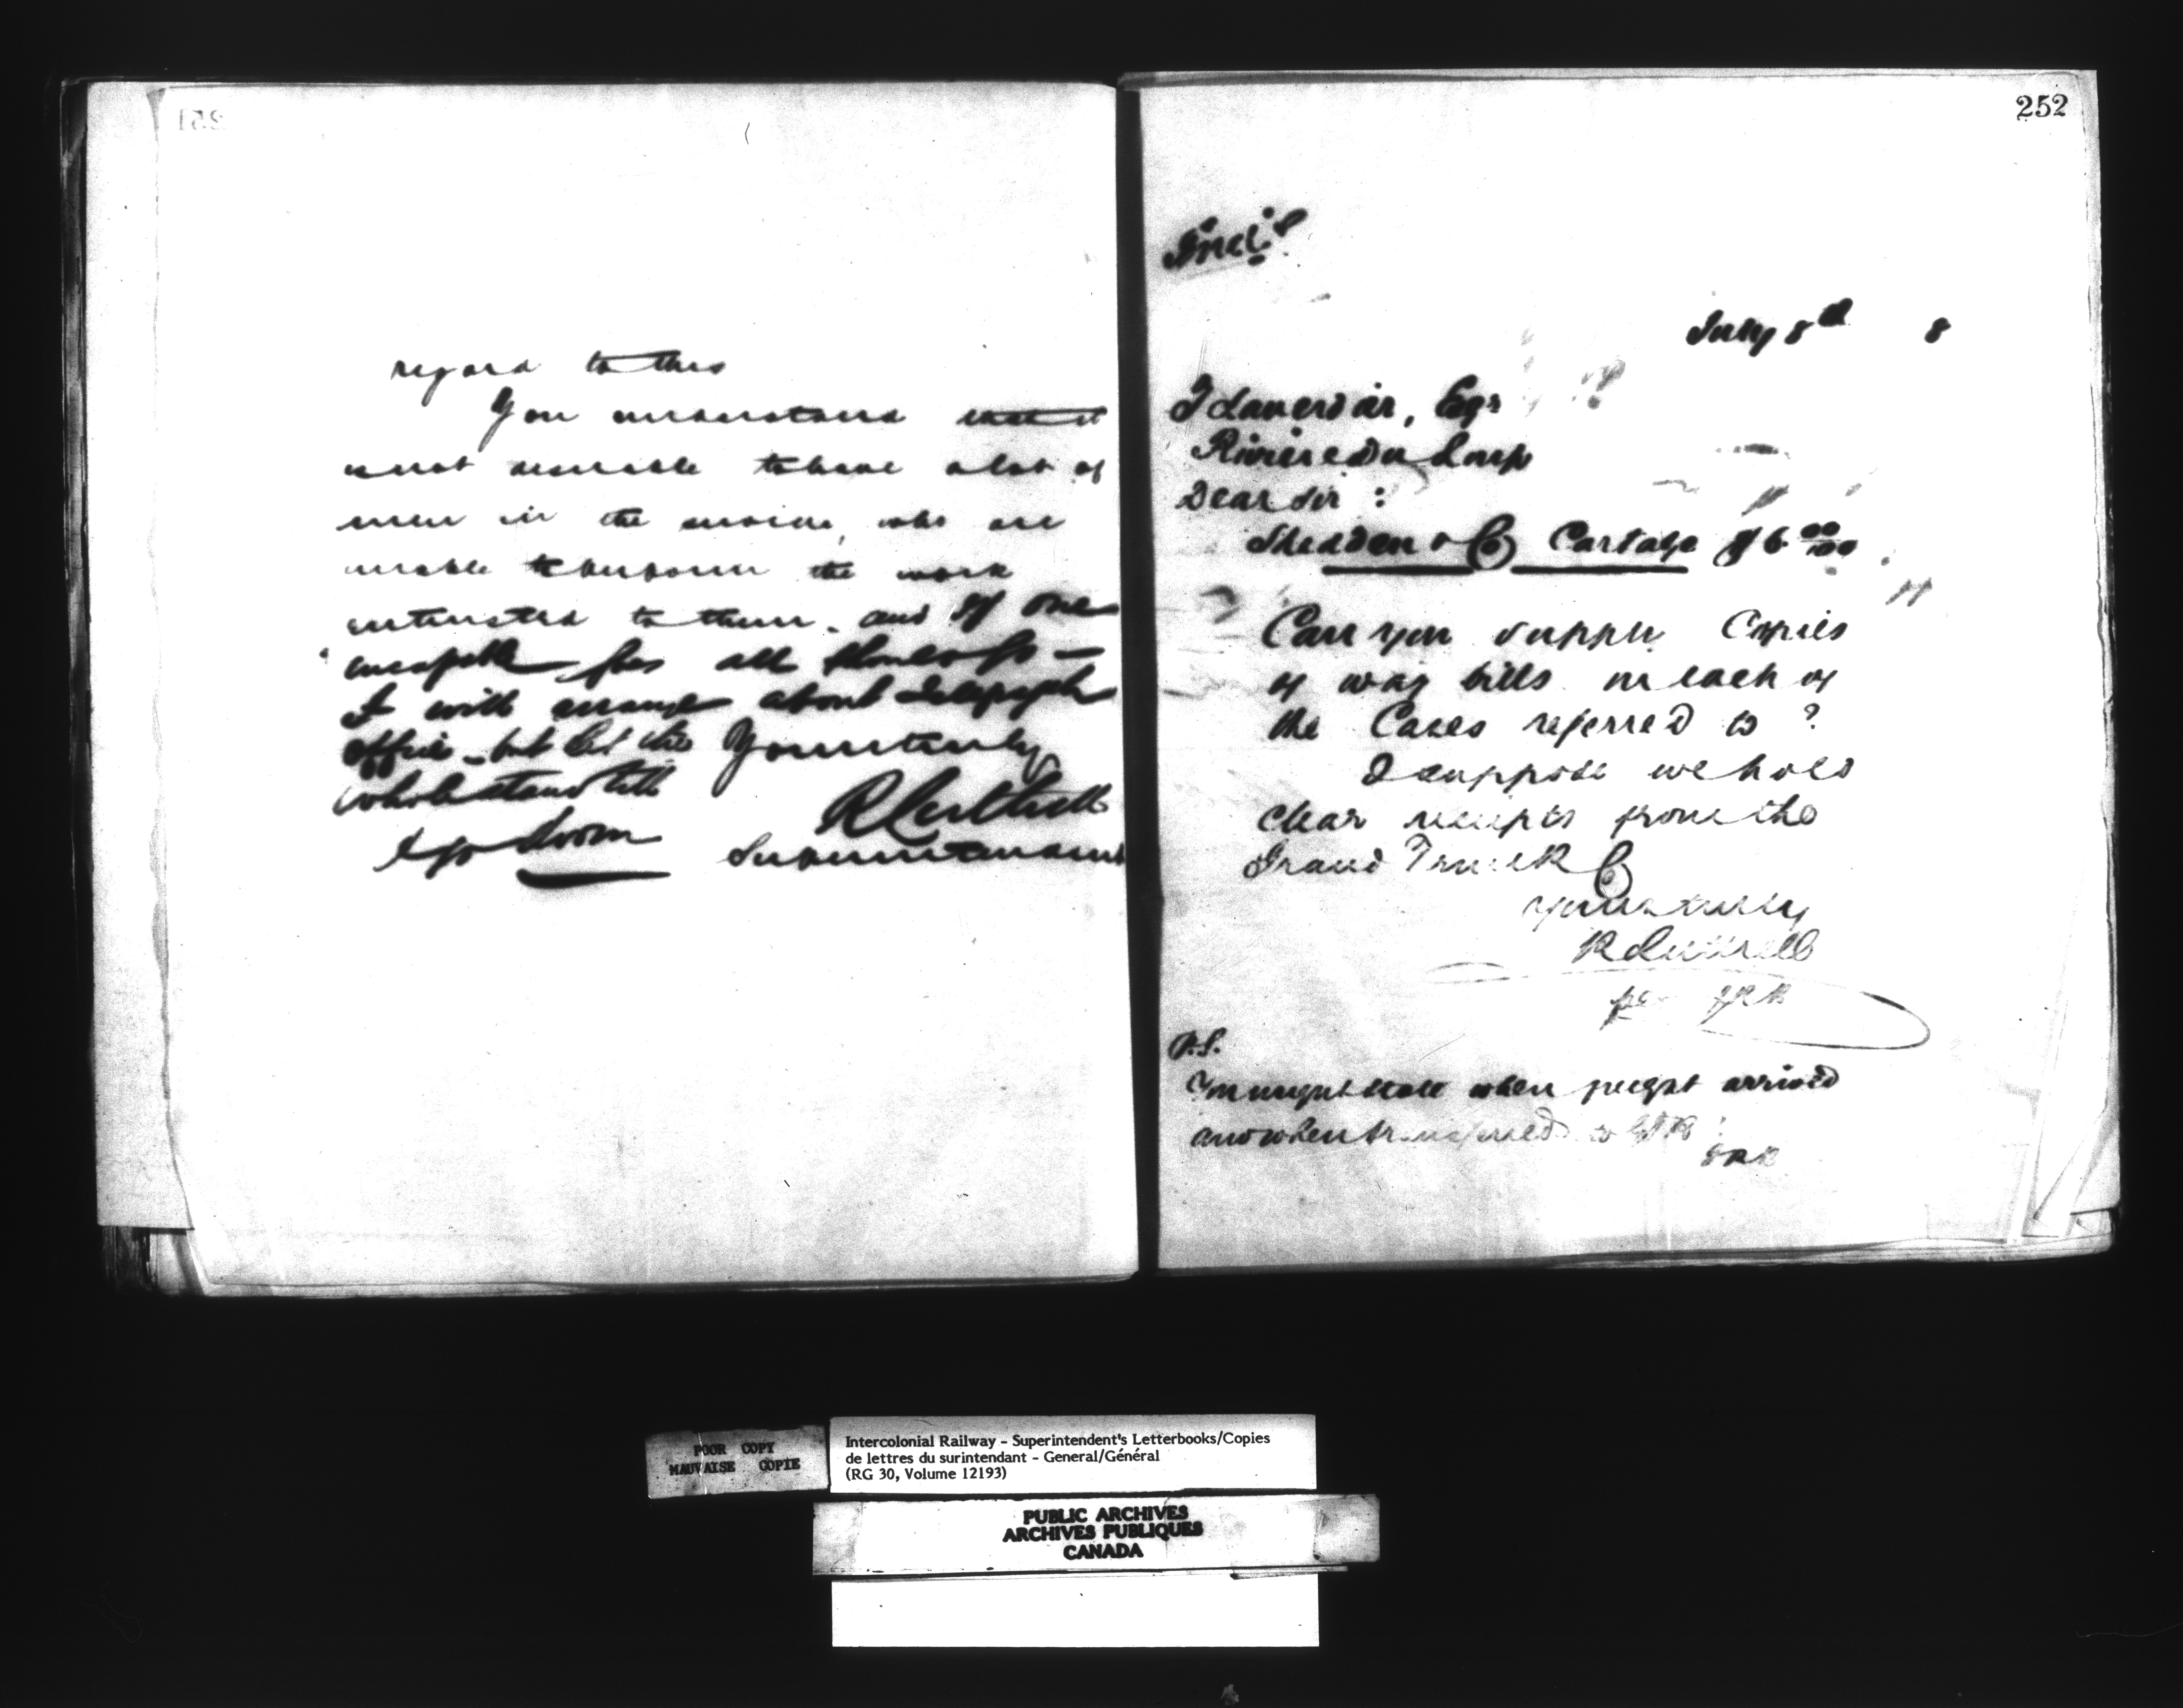 251
regard to this
You understand that it
is not desirable to have a lot of
men in the service, who are
unable to perform the work
entrusted to them. and if one
incapable goes all should go —
I will arrange about Telegraph
office - but let the Yours truly
whole stand till
I go down
R Luttrell
Superintendent
252
Encl
July 8th 8
Esqr
Riviere du Loup
Dear Sir :
Shedden & Co Cartage $6 00/100
Can you supply Copies
of way bills in each of
the Cases referred to ?
I suppose we hold
clear receipts from the
Grand Trunk Co
Yours truly
R Luttrell
per
P.S.
You might state when freight arrived
and when transferred to
POOR COPY
MAUVAISE COPIE
Intercolonial Railway - Superintendent's Letterbooks/Copies
de lettres du surintendant - General/Général
(RG 30, Volume 12193)
PUBLIC ARCHIVES
ARCHIVES PUBLIQUES
CANADA